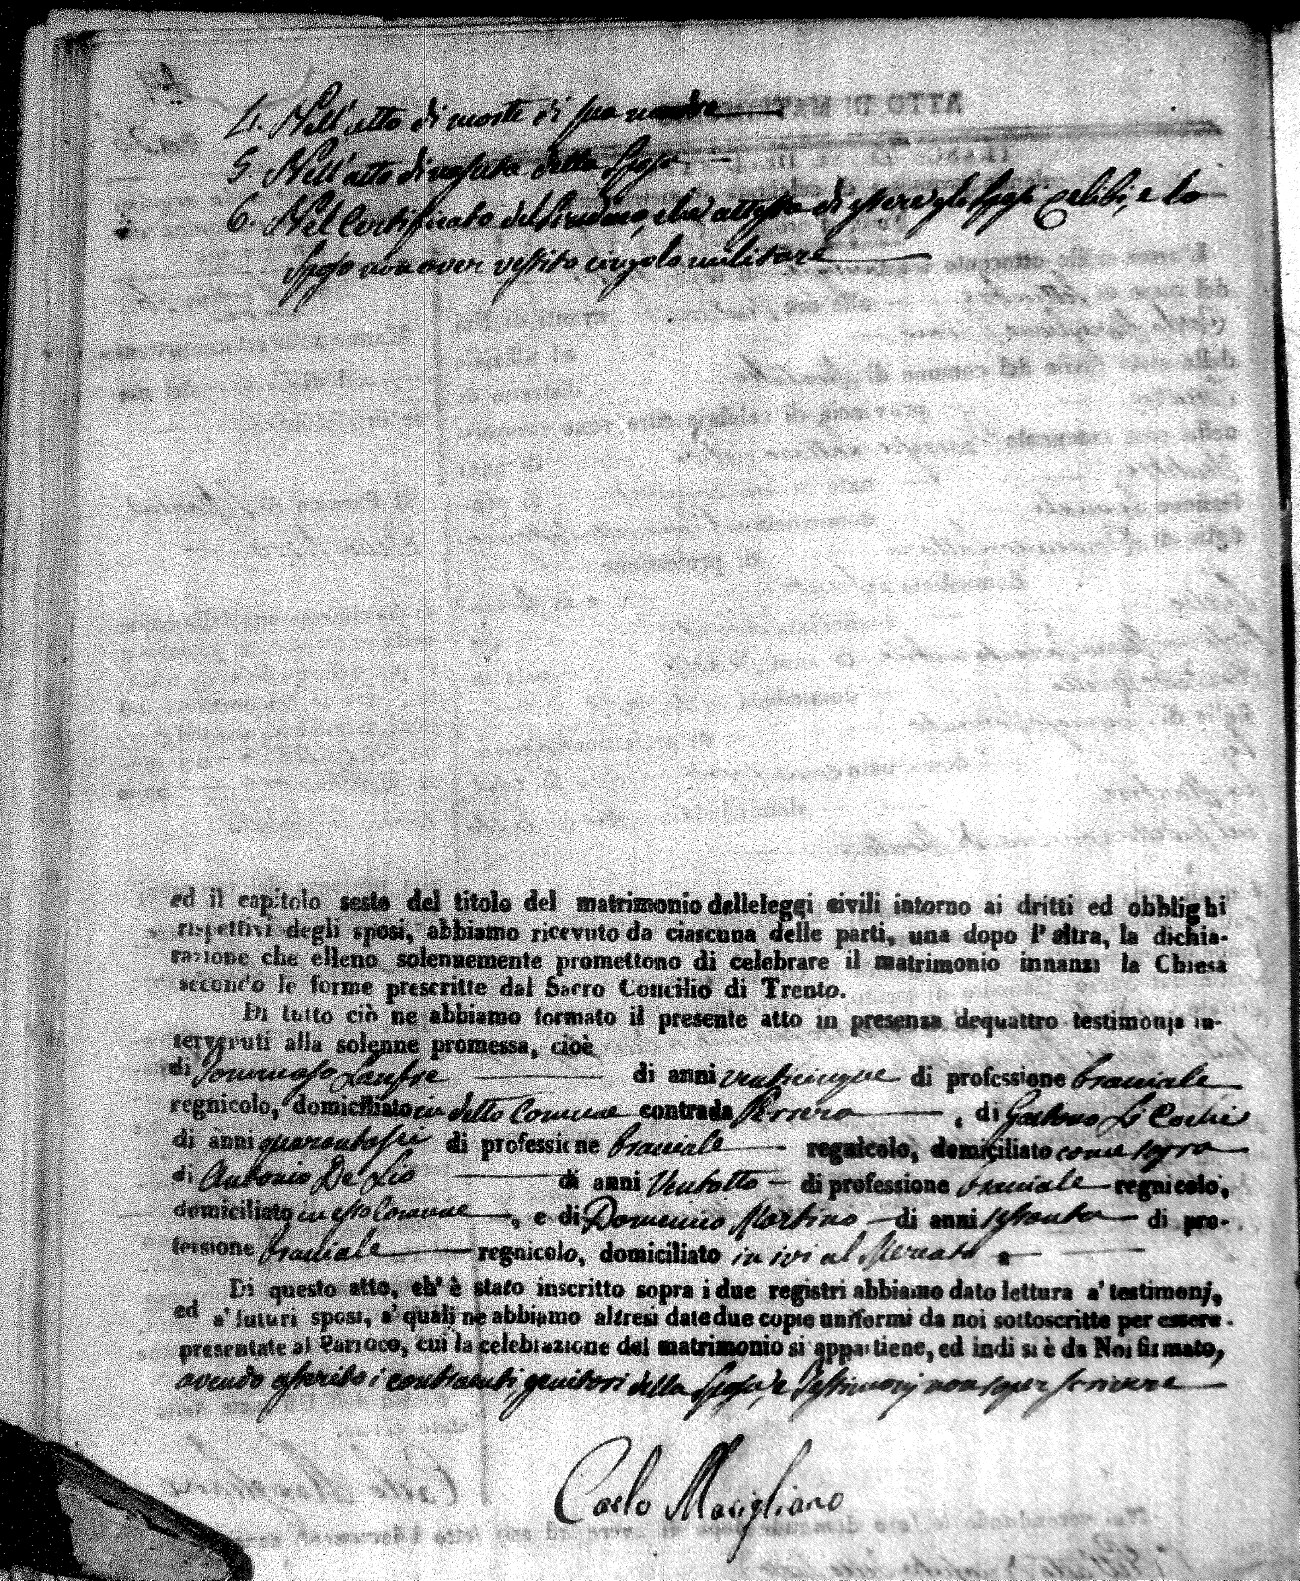 4. Nell'atto di morte di sua madre
5. Nell'atto di nascita della Sposa
6. Nel Certificato del Sindaco, che attesta di essere gli Sposi Celibi, e lo
Sposo non aver vestito cingolo militare
ed il capitolo sesto del titolo del matrimonio delleleggi civili intorno ai dritti ed obblighi
rispettivi degli sposi, abbiamo ricevuto da ciascuna delle parti, una dopo l'altra, la dichia-
razione che elleno solennemente promettono di celebrare il matrimonio innanzi la Chiesa
secondo le forme prescritte dal Sacro Concilio di Trento.
Di tutto ciò ne abbiamo formato il presente atto in presenza dequattro testimonj in-
tervenuti alla solenne promessa, cioè
di Tommaso Lanfre di anni venticinque di professione bracciale
regnicolo, domiciliato in detto Comune contrada , di Gaetano
di anni quarantasei di professione bracciale regnicolo, domiciliato come sopra
di Antonio De Lio di anni Ventotto di professione bracciale regnicolo,
domiciliato in esso Comune, e di Domenico Martino di anni sessanta di pro-
fessione bracciale regnicolo, domiciliato in ivi al Mercato
Di questo atto, ch'è stato inscritto sopra i due registri abbiamo dato lettura a' testimonj,
ed a' futuri sposi, a' quali ne abbiamo altresì date due copie uniformi da noi sottoscritte per essere
presentate al Parroco, cui la celebrazione del matrimonio si appartiene, ed indi si è da Noi firmato,
avendo asserito i contraenti, genitori della Sposa, e Testimonj non saper scrivere
Carlo Marigliano